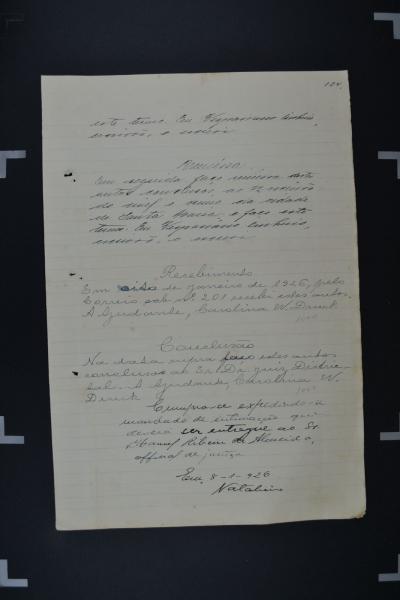 124
este termo. Eu
escrivão, o escrevi
Remessa
Em seguida faço remessa destes
autos conclusos ao
de civel e da cidade
de Santa Maria, e faço este
termo. Eu
escrivão, o escrevi
Recebimento
Em oito de janeiro de 1926, pelo
Correio sob nº 201 recebi estes autos.
A Ajudante, Carolina W. Druck
Conclusão
Na data supra faço estes autos
conclusos ao Exº Dr. Juiz Distri-
tal. A Ajudante, Carolina W.
Druck
Cumpra-se expedindo-se
mandado de intimação que
deverá ser entregue ao Sr
Manoel Ribeiro de Almeida,
official de justiça
Em, 8-1-926